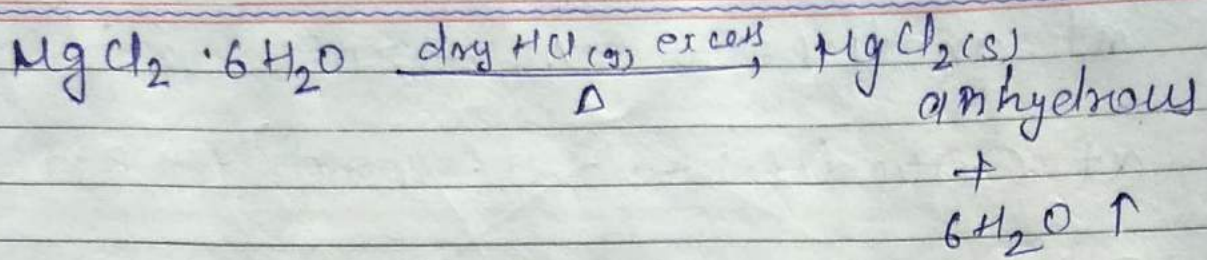 MgCl₂ ·6H₂O dry HCl(g) excess Δ → MgCl₂(s)
anhydrous
+
6H₂O ↑